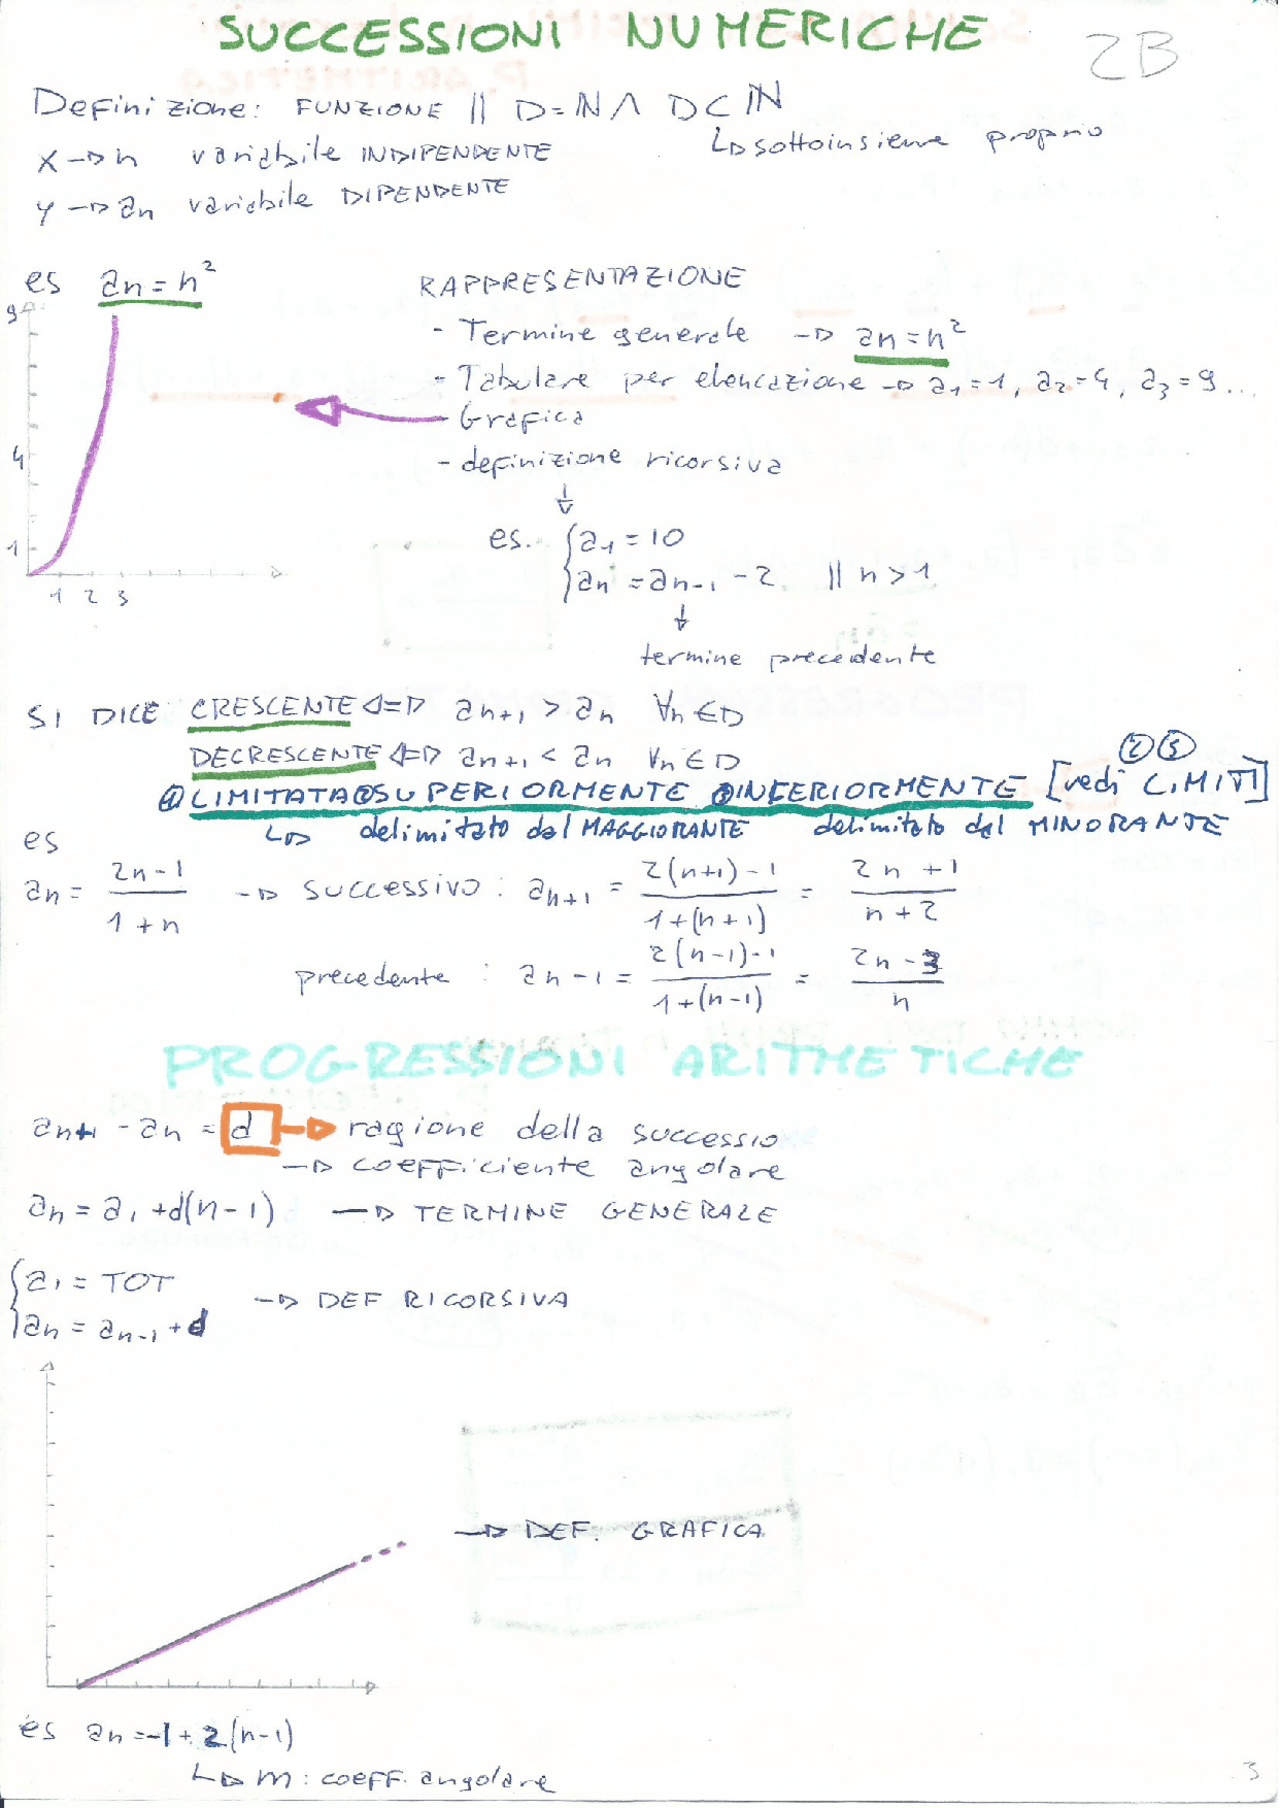 SUCCESSIONI NUMERICHE
2B
Definizione: FUNZIONE || D=ℕ ∧ D⊂ℕ
↳ sottoinsieme proprio
X → n variabile INDIPENDENTE
Y → an variabile DIPENDENTE
es an = n²
9
4
1
1 2 3
RAPPRESENTAZIONE
- Termine generale → an = n²
- Tabulare per elencazione → a1=1, a2=4, a3=9...
- Grafica
- definizione ricorsiva
↓
es. { a1 = 10
{ an = an-1 - 2 || n > 1
↓
termine precedente
SI DICE CRESCENTE ⇔ an+1 > an ∀n ∈ D
DECRESCENTE ⇔ an+1 < an ∀n ∈ D
② ③
① LIMITATA ② SUPERIORMENTE ③ INFERIORMENTE [vedi LIMITI]
↳ delimitato dal MAGGIORANTE delimitato dal MINORANTE
es
an = (2n-1)/(1+n) → successivo: an+1 = (2(n+1)-1)/(1+(n+1)) = (2n+1)/(n+2)
precedente: an-1 = (2(n-1)-1)/(1+(n-1)) = (2n-3)/n
PROGRESSIONI ARITMETICHE
an+1 - an = d → ragione della successio
→ coefficiente angolare
an = a1 + d(n-1) → TERMINE GENERALE
{ a1 = TOT
{ an = an-1 + d → DEF RICORSIVA
→ DEF. GRAFICA
es an = -1 + 2(n-1)
↳ m: coeff. angolare
3